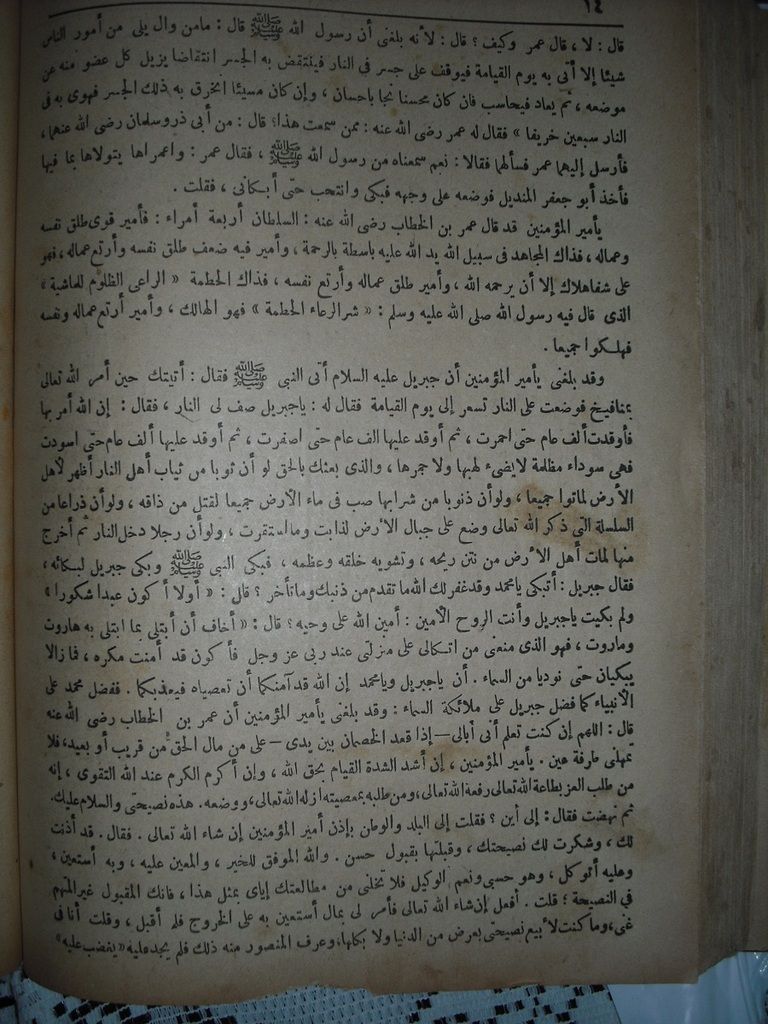 ١٤
قال : لا ، قال عمر وكيف ؟ قال : لأنه بلغنى أن رسول الله ﷺ قال : مامن وال يلى من أمور الناس
شيئا إلا أتى به يوم القيامة فيوقف على جسر فى النار فينتقض به الجسر انتقاضا يزيل كل عضو منه عن
موضعه ، ثم يعاد فيحاسب فان كان محسنا نجا باحسان ، وإن كان مسيئا انخرق به ذلك الجسر فهوى به فى
النار سبعين خريفا » فقال له عمر رضى الله عنه : ممن سمعت هذا؟ قال : من أبى ذر وسلمان رضى الله عنهما ،
فأرسل إليهما عمر فسألهما فقالا : نعم سمعناه من رسول الله ﷺ ، فقال عمر : واعمراها يتولاها بما فيها
فأخذ أبو جعفر المنديل فوضعه على وجهه فبكى وانتحب حتى أبكانى ، فقلت .
يأمير المؤمنين قد قال عمر بن الخطاب رضى الله عنه : السلطان أربعة أمراء : فأمير قوى طلق نفسه
وعماله ، فذاك المجاهد فى سبيل الله يد الله عليه باسطة بالرحمة ، وأمير فيه ضعف طلق نفسه وأرتع عماله ، فهو
على شفاهلاك إلا أن يرحمه الله ، وأمير طلق عماله وأرتع نفسه ، فذاك الحطمة « الراعى الظلوم للماشية »
الذى قال فيه رسول الله صلى الله عليه وسلم : « شر الرعاء الحطمة » فهو الهالك ، وأمير أرتع عماله ونفسه
فهلكوا جميعا .
وقد بلغنى يأمير المؤمنين أن جبريل عليه السلام أتى النبى ﷺ فقال : أتيتك حين أمر الله تعالى
بمنافيخ فوضعت على النار تسعر إلى يوم القيامة فقال له : ياجبريل صف لى النار ، فقال : إن الله أمر بها
فأوقدت ألف عام حتى احمرت ، ثم أوقد عليها الف عام حتى اصفرت ، ثم أوقد عليها ألف عام حتى اسودت
فهى سوداء مظلمة لايضىء لهبها ولا جمرها ، والذى بعثك بالحق لو أن ثوبا من ثياب أهل النار أظهر لأهل
الأرض لماتوا جميعا ، ولوأن ذنوبا من شرابها صب فى ماء الأرض جميعا لقتل من ذاقه ، ولوأن ذراعا من
السلسلة التى ذكر الله تعالى وضع على جبال الأرض لذابت وما استقرت ، ولوأن رجلا دخل النار ثم أخرج
منها لمات أهل الأرض من نتن ريحه ، وتشويه خلقه وعظمه ، فبكى النبى ﷺ وبكى جبريل لبكائه ،
فقال جبريل : أتبكى يامحمد وقد غفر لك الله ما تقدم من ذنبك وما تأخر ؟ قال : « أولا أكون عبدا شكورا »
ولم بكيت ياجبريل وأنت الروح الأمين : أمين الله على وحيه ؟ قال : « أخاف أن أبتلى بما ابتلى به هاروت
وماروت ، فهو الذى منعنى من اتكالى على منزلتى عند ربى عز وجل فأكون قد أمنت مكره ، فما زالا
يبكيان حتى نوديا من السماء . أن ياجبريل ويامحمد إن الله قد آمنكما أن تعصياه فيعذبكما . ففضل محمد على
الأنبياء كما فضل جبريل على ملائكة السماء : وقد بلغنى يأمير المؤمنين أن عمر بن الخطاب رضى الله عنه
قال : اللهم إن كنت تعلم أنى أبالى — إذا قعد الخصمان بين يدى — على من مال الحق من قريب أو بعيد، فلا
تمهلنى طرفة عين . يأمير المؤمنين ، إن أشد الشدة القيام بحق الله ، وإن أكرم الكرم عند الله التقوى ، إنه
من طلب العز بطاعة الله تعالى رفعه الله تعالى، ومن طلبه بمعصيته أزله الله تعالى، ووضعه. هذه نصيحتى والسلام عليك.
ثم نهضت فقال : إلى أين ؟ فقلت إلى البلد والوطن بإذن أمير المؤمنين إن شاء الله تعالى . فقال . قد أذنت
لك ، وشكرت لك نصيحتك ، وقبلتها بقبول حسن . والله الموفق للخير ، والمعين عليه ، وبه أستعين ،
وعليه أتوكل ، وهو حسبى ونعم الوكيل فلا تخلنى من مطالعتك إياى بمثل هذا ، فانك المقبول غير المتهم
فى النصيحة ؛ قلت . أفعل إن شاء الله تعالى فأمر لى بمال أستعين به على الخروج فلم أقبل ، وقلت أنا فى
غنى ، وما كنت لأبيع نصيحتى بعرض من الدنيا ولا بكلها ، وعرف المنصور منه ذلك فلم يجد عليه «يغضب عليه»